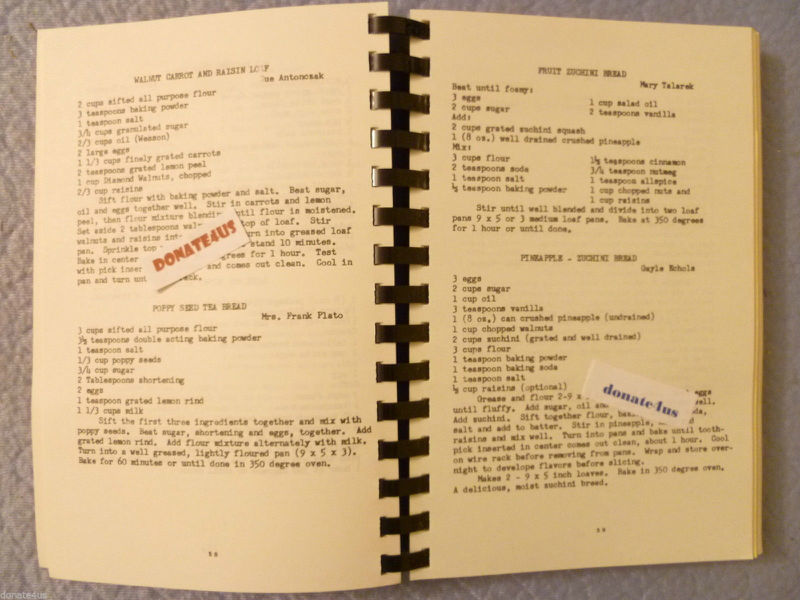 WALNUT CARROT AND RAISIN LOAF
ue Antonczak
2 cups sifted all purpose flour
3 teaspoons baking powder
1 teaspoon salt
3/4 cups granulated sugar
2/3 cups oil (Wesson)
2 large eggs
1 1/3 cups finely grated carrots
2 teaspoons grated lemon peel
1 cup Diamond Walnuts, chopped
2/3 cup raisins
Sift flour with baking powder and salt. Beat sugar,
oil and eggs together well. Stir in carrots and lemon
peel, then flour mixture blending until flour is moistened.
Set aside 2 tablespoons top of loaf. Stir
walnuts and raisins turn into greased loaf
pan. Sprinkle top stand 10 minutes.
Bake in center for 1 hour. Test
with pick and comes out clean. Cool in
pan and turn
DONATE4US
POPPY SEED TEA BREAD
Mrs. Frank Plato
3 cups sifted all purpose flour
3½ teaspoons double acting baking powder
1 teaspoon salt
1/3 cup poppy seeds
3/4 cup sugar
2 Tablespoons shortening
2 eggs
1 teaspoon grated lemon rind
1 1/3 cups milk
Sift the first three ingredients together and mix with
poppy seeds. Beat sugar, shortening and eggs, together. Add
grated lemon rind. Add flour mixture alternately with milk.
Turn into a well greased, lightly floured pan (9 x 5 x 3).
Bake for 60 minutes or until done in 350 degree oven.
FRUIT ZUCHINI BREAD
Mary Talarek
Beat until foamy:
3 eggs
2 cups sugar
1 cup salad oil
2 teaspoons vanilla
Add:
2 cups grated zuchini squash
1 (8 oz.) well drained crushed pineapple
Mix:
3 cups flour
2 teaspoons soda
1 teaspoon salt
½ teaspoon baking powder
1½ teaspoons cinnamon
3/4 teaspoon nutmeg
1 teaspoon allspice
1 cup chopped nuts and
1 cup raisins
Stir until well blended and divide into two loaf
pans 9 x 5 or 3 medium loaf pans. Bake at 350 degrees
for 1 hour or until done.
PINEAPPLE - ZUCHINI BREAD
Gayle Echols
3 eggs
2 cups sugar
1 cup oil
3 teaspoons vanilla
1 (8 oz.) can crushed pineapple (undrained)
1 cup chopped walnuts
2 cups zuchini (grated and well drained)
3 cups flour
1 teaspoon baking powder
1 teaspoon baking soda
1 teaspoon salt
½ cup raisins (optional)
Grease and flour 2-9 x eggs
until fluffy. Add sugar, oil
Add zuchini. Sift together flour,
salt and add to batter. Stir in pineapple,
raisins and mix well. Turn into pans and bake until tooth-
pick inserted in center comes out clean, about 1 hour. Cool
on wire rack before removing from pans. Wrap and store over-
night to develop flavors before slicing.
Makes 2 - 9 x 5 inch loaves. Bake in 350 degree oven.
A delicious, moist zuchini bread.
donate4us
donate4us